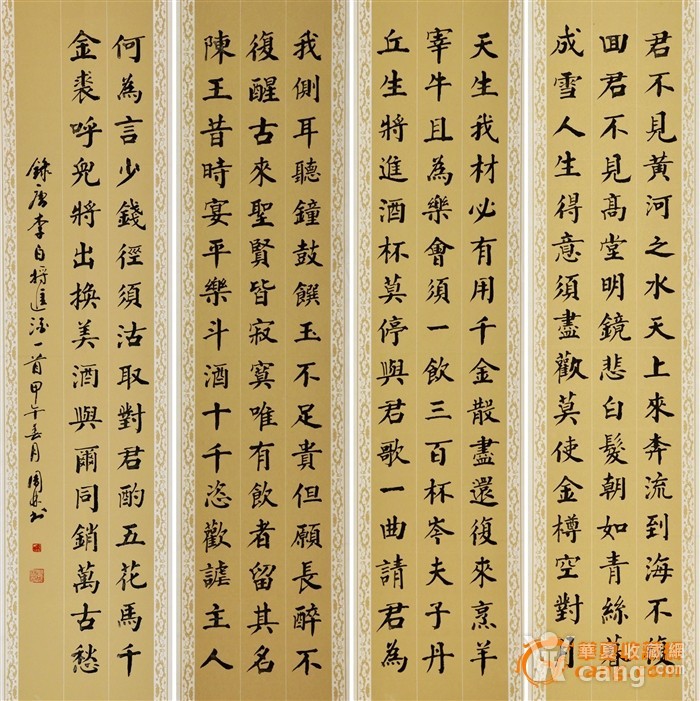 君不見黃河之水天上來奔流到海不復
囬君不見高堂明鏡悲白髮朝如青絲暮
成雪人生得意須盡歡莫使金樽空對月
天生我材必有用千金散盡還復來烹羊
宰牛且為樂會須一飲三百杯岑夫子丹
丘生將進酒杯莫停與君歌一曲請君為
我側耳聽鐘鼓饌玉不足貴但願長醉不
復醒古來聖賢皆寂寞唯有飲者留其名
陳王昔時宴平樂斗酒十千恣歡謔主人
何為言少錢徑須沽取對君酌五花馬千
金裘呼兒將出換美酒與爾同銷萬古愁
錄唐李白將進酒一首甲午春月周書
華夏收藏網
cang.com